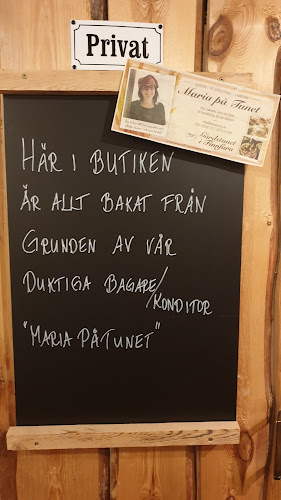 Privat
Maria på Tunet
HÄR I BUTIKEN
ÄR ALLT BAKAT FRÅN
GRUNDEN AV VÅR
DUKTIGA BAGARE/
KONDITOR
"MARIA PÅ TUNET"